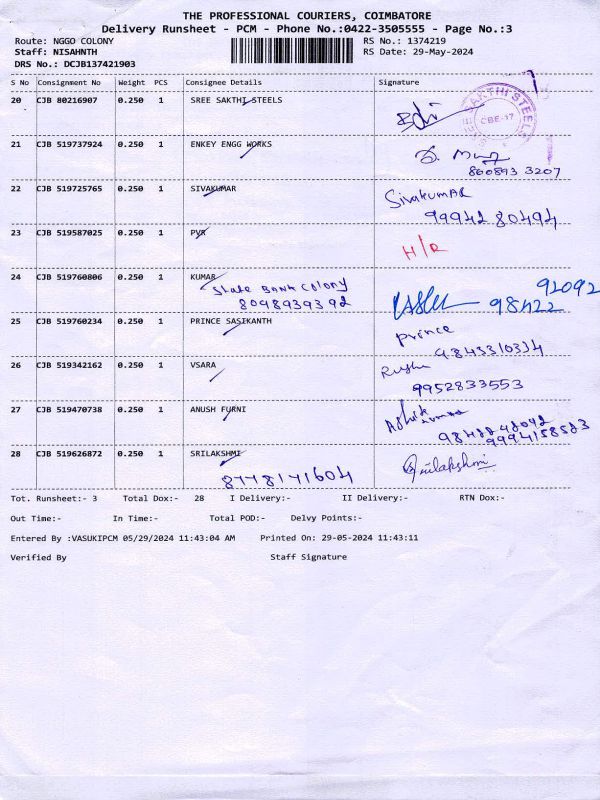 THE PROFESSIONAL COURIERS, COIMBATORE
Delivery Runsheet - PCM - Phone No.:0422-3505555 - Page No.:3
Route: NGGO COLONY RS No.: 1374219
Staff: NISAHNTH RS Date: 29-May-2024
DRS No.: DCJB137421903
S No Consignment No Weight PCS Consignee Details Signature
20 CJB 80216907 0.250 1 SREE SAKTHI STEELS
SAKTHI STEELS
CBE-17
21 CJB 519737924 0.250 1 ENKEY ENGG WORKS
860893 3207
22 CJB 519725765 0.250 1 SIVAKUMAR Sivakumar
99942 80494
23 CJB 519587025 0.250 1 PVR H/R
24 CJB 519760806 0.250 1 KUMAR
State Bank Colony 92092
8098939392 98422
25 CJB 519760234 0.250 1 PRINCE SASIKANTH prince
9843310334
26 CJB 519342162 0.250 1 VSARA
9952833553
27 CJB 519470738 0.250 1 ANUSH FURNI
9994158583
28 CJB 519626872 0.250 1 SRILAKSHMI Srilakshmi
8778171604
Tot. Runsheet:- 3 Total Dox:- 28 I Delivery:- II Delivery:- RTN Dox:-
Out Time:- In Time:- Total POD:- Delvy Points:-
Entered By :VASUKIPCM 05/29/2024 11:43:04 AM Printed On: 29-05-2024 11:43:11
Verified By Staff Signature